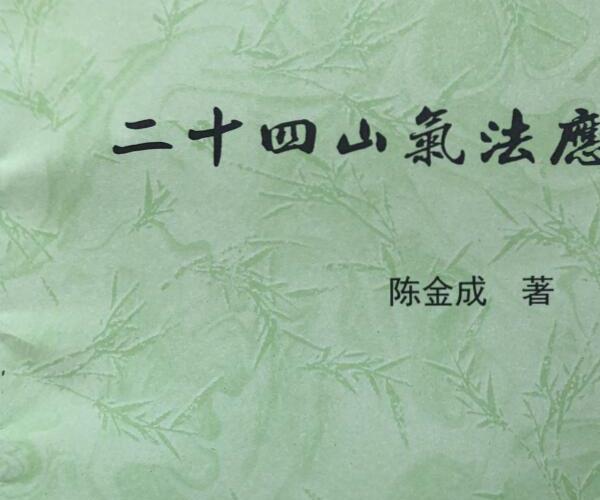 二十四山氣法應
陈金成 著